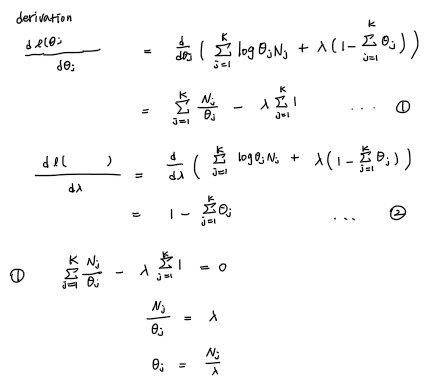 derivation
dl(θj / dθj = d/dθj ( Σ_{j=1}^{K} logθjNj + λ(1-Σ_{j=1}^{K}θj) )
= Σ_{j=1}^{K} Nj/θj - λ Σ_{j=1}^{K} 1 ... ①
dl( ) / dλ = d/dλ ( Σ_{j=1}^{K} logθjNj + λ(1-Σ_{j=1}^{K}θj) )
= 1 - Σ_{j=1}^{K}θj ... ②
① Σ_{j=1}^{K} Nj/θj - λ Σ_{j=1}^{K} 1 = 0
Nj/θj = λ
θj = Nj/λ